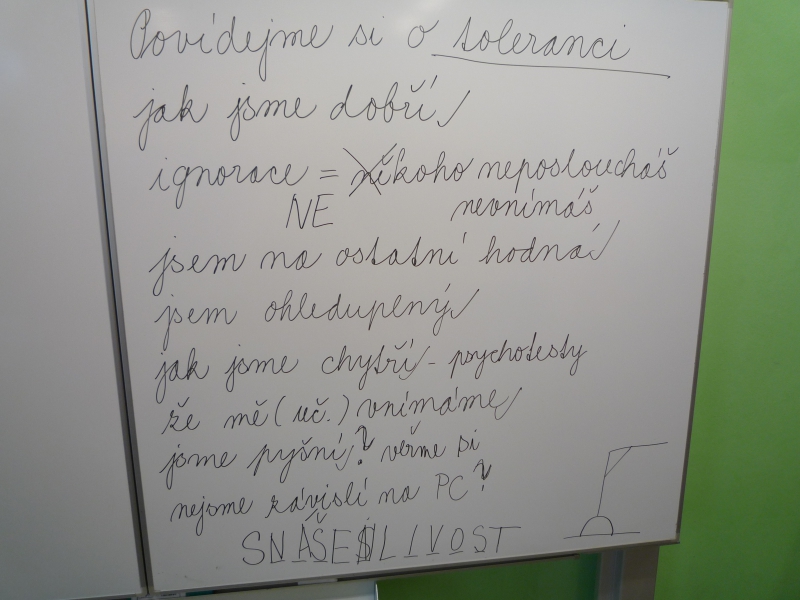 Povídejme si o toleranci
jak jsme dobří
ignorace = někoho neposloucháš
NE nevnímáš
jsem na ostatní hodná
jsem ohleduplný
jak jsme chytří - psychotesty
že mě (uč.) vnímáme
jsme pyšní? věřme si
nejsme závislí na PC?
SNÁŠENLIVOST